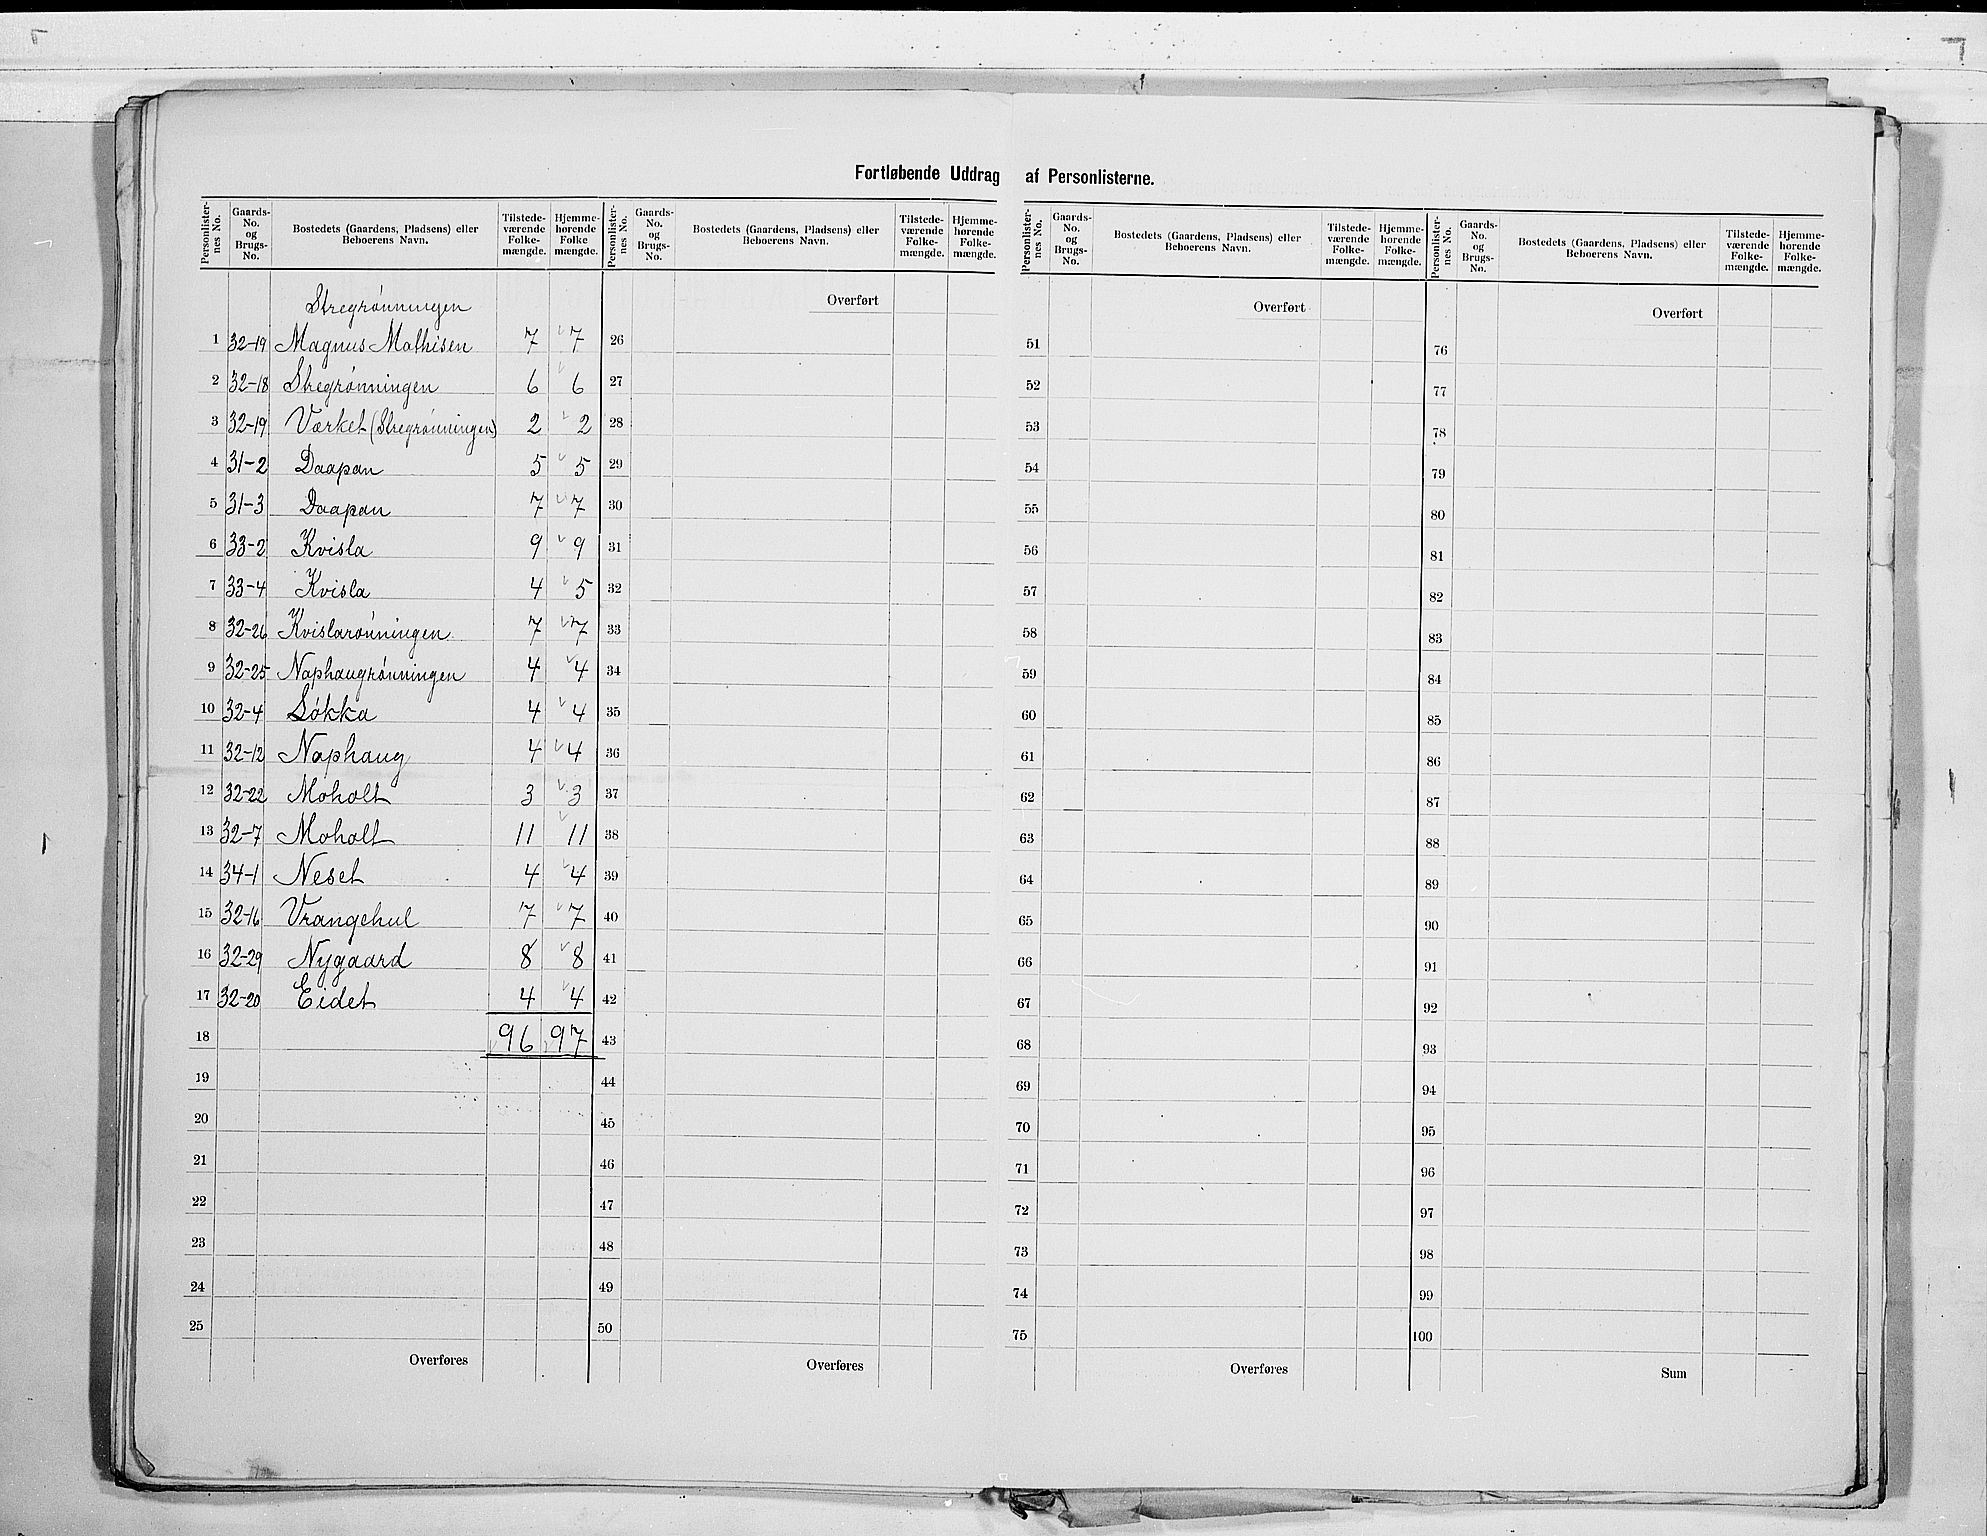 Fortløbende Uddrag af Personlisterne.
Personlister-nes No. Gaards-No. og Brugs-No. Bostedets (Gaardens, Pladsens) eller Beboerens Navn. Tilstede-værende Folke-mængde. Hjemme-hørende Folke mængde.
Stregrønningen
1 32-19 Magnus Mathisen 7 7
2 32-18 Stregrønningen 6 6
3 32-19 Værket (Stregrønningen) 2 2
4 31-2 Daapan 5 5
5 31-3 Daapan 7 7
6 33-2 Kvisla 9 9
7 33-4 Kvisla 4 5
8 32-26 Kvislarønningen 7 7
9 32-25 Naphaugrønningen 4 4
10 32-4 Løkka 4 4
11 32-12 Naphaug 4 4
12 32-22 Moholt 3 3
13 32-7 Moholt 11 11
14 34-1 Neset 4 4
15 32-16 Vrangehul 7 7
16 32-29 Nygaard 8 8
17 32-20 Eidet 4 4
18 96 97
19
20
21
22
23
24
25
Overføres
Personlister-nes No. Gaards-No. og Brugs-No. Bostedets (Gaardens, Pladsens) eller Beboerens Navn. Tilstede-værende Folke-mængde. Hjemme-hørende Folke-mængde.
Overført
26
27
28
29
30
31
32
33
34
35
36
37
38
39
40
41
42
43
44
45
46
47
48
49
50
Overføres
Personlister-nes No. Gaards-No. og Brugs-No. Bostedets (Gaardens, Pladsens) eller Beboerens Navn. Tilstede-værende Folke-mængde. Hjemme-hørende Folke-mængde.
Overført
51
52
53
54
55
56
57
58
59
60
61
62
63
64
65
66
67
68
69
70
71
72
73
74
75
Overføres
Personlister-nes No. Gaards-No. og Brugs-No. Bostedets (Gaardens, Pladsens) eller Beboerens Navn. Tilstede-værende Folke-mængde. Hjemme-hørende Folke-mængde.
Overført
76
77
78
79
80
81
82
83
84
85
86
87
88
89
90
91
92
93
94
95
96
97
98
99
100
Sum